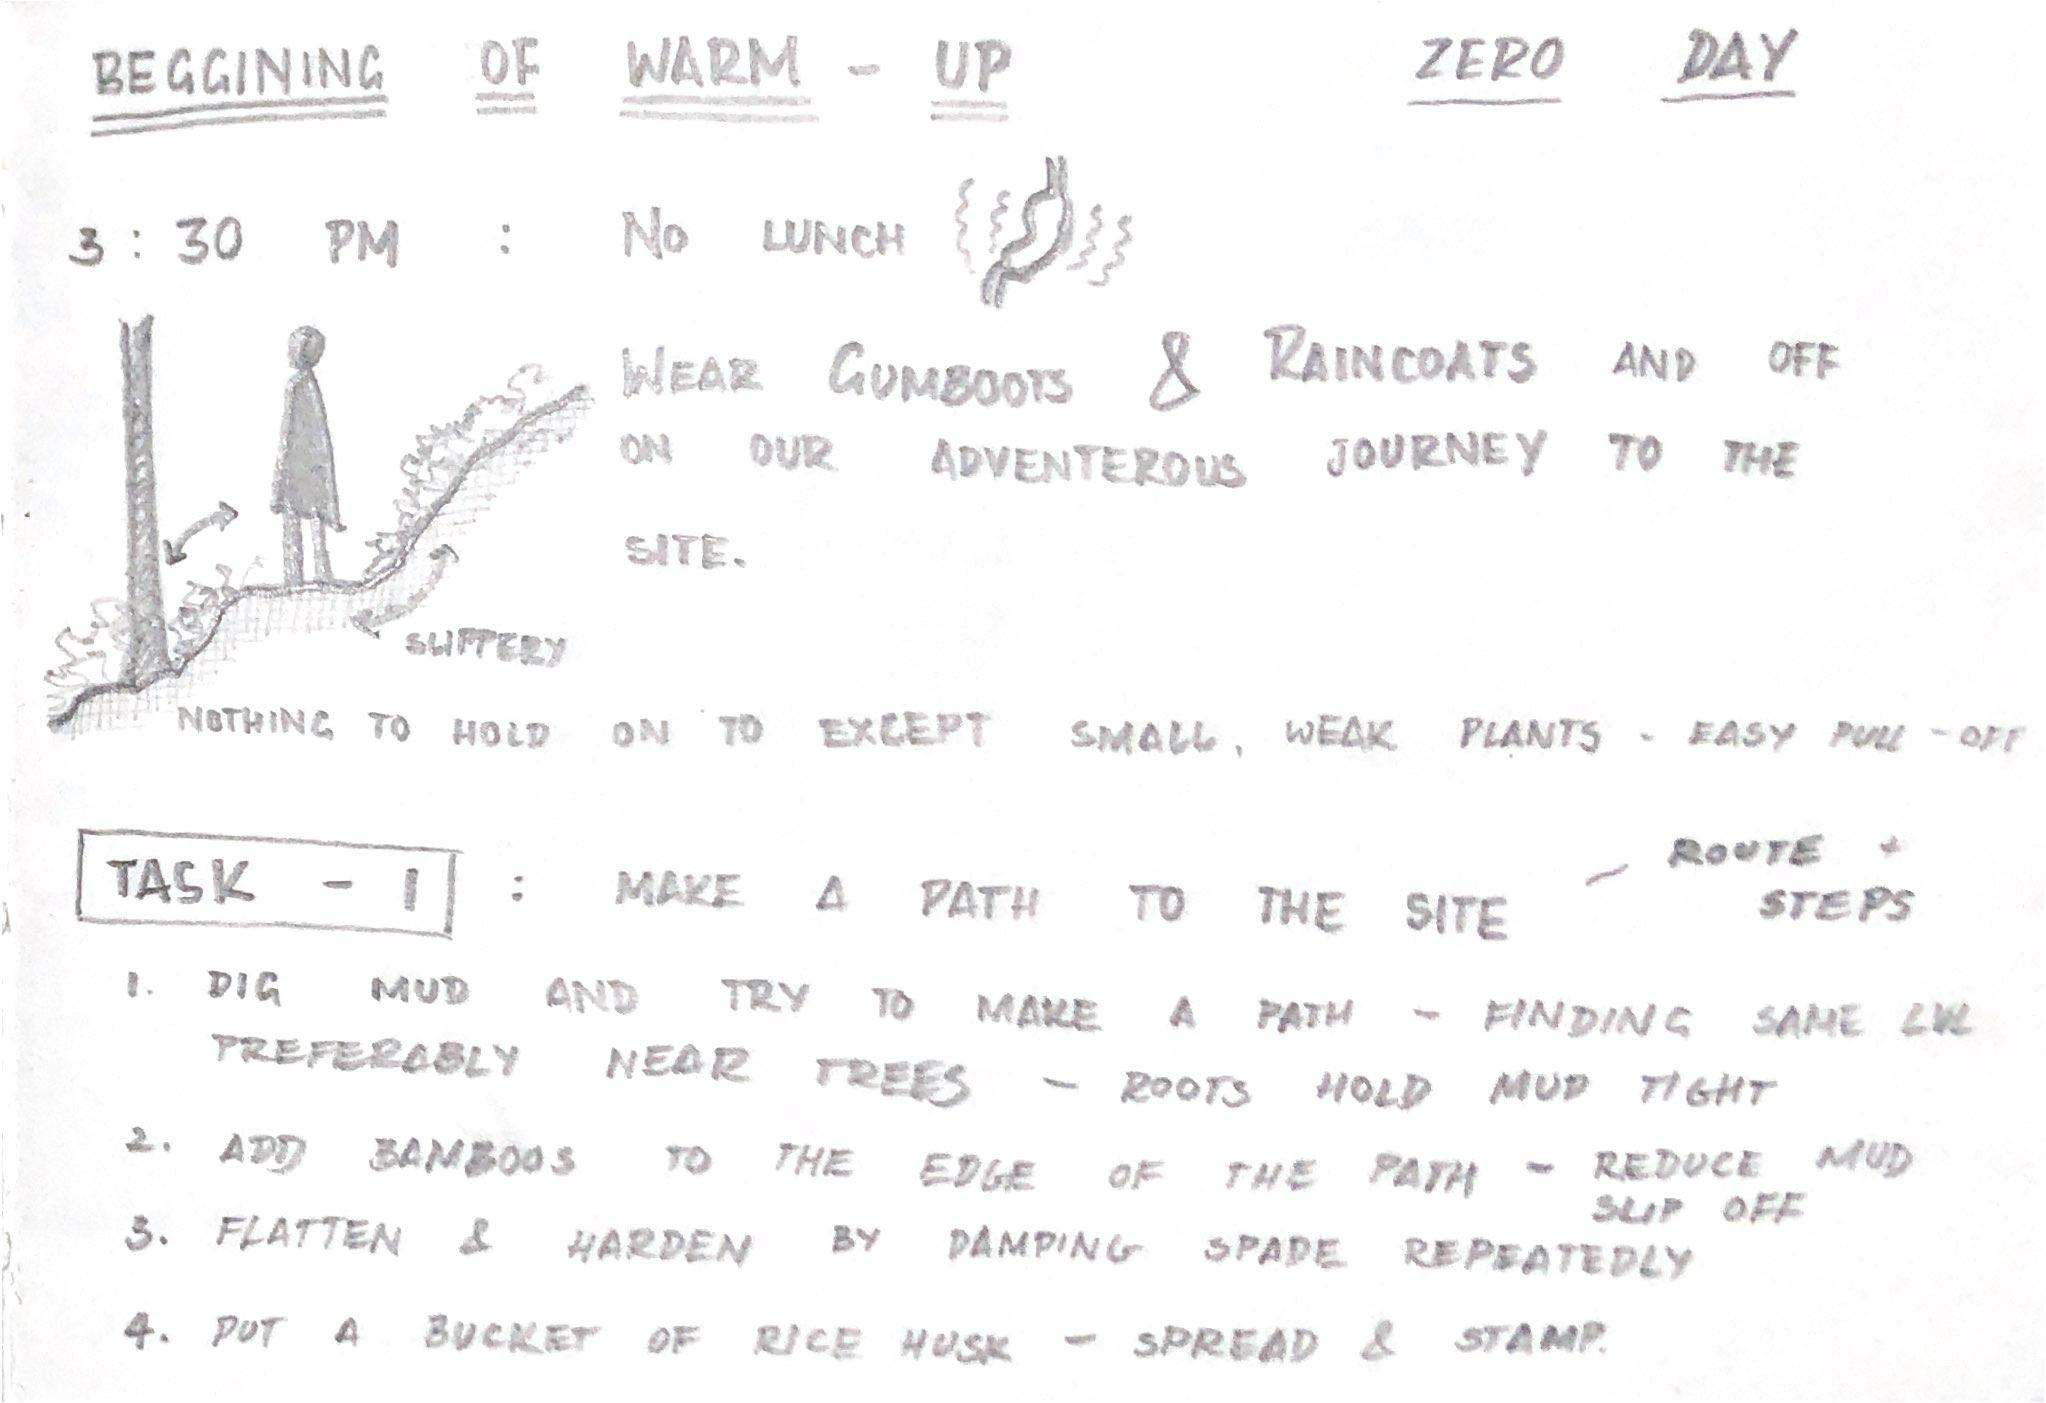 BEGGINING OF WARM - UP ZERO DAY
3 : 30 PM : NO LUNCH
WEAR GUMBOOTS & RAINCOATS AND OFF
ON OUR ADVENTEROUS JOURNEY TO THE
SITE.
SLIPPERY
NOTHING TO HOLD ON TO EXCEPT SMALL, WEAK PLANTS - EASY PULL - OFF
TASK - 1 : MAKE A PATH TO THE SITE - ROUTE +
STEPS
1. DIG MUD AND TRY TO MAKE A PATH - FINDING SAME LVL
PREFERABLY NEAR TREES - ROOTS HOLD MUD TIGHT
2. ADD BAMBOOS TO THE EDGE OF THE PATH - REDUCE MUD
SLIP OFF
3. FLATTEN & HARDEN BY DAMPING SPADE REPEATEDLY
4. PUT A BUCKET OF RICE HUSK - SPREAD & STAMP.